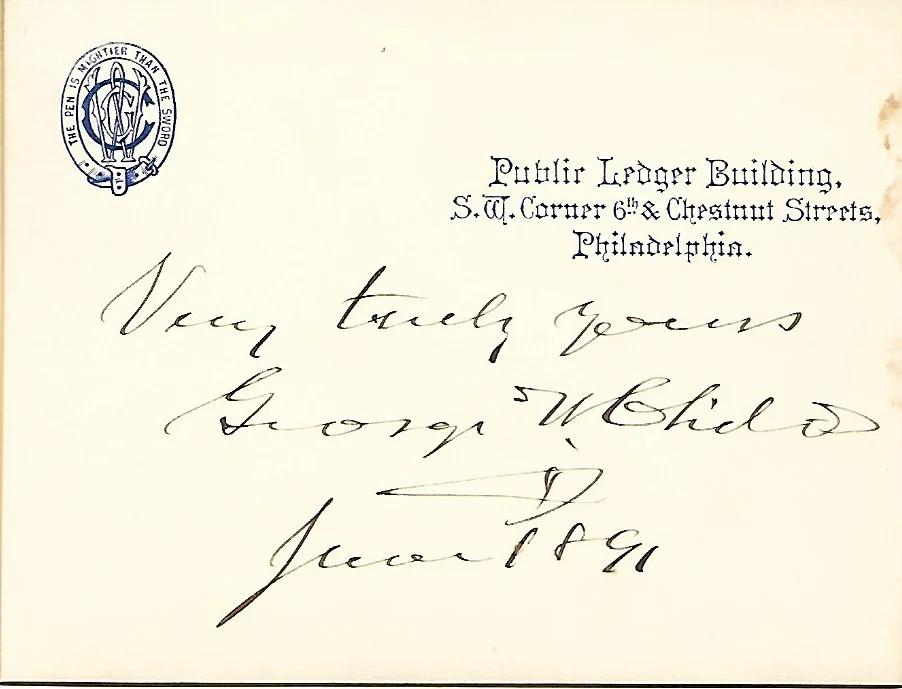 THE PEN IS MIGHTIER THAN THE SWORD
Public Ledger Building,
S.W. Corner 6th & Chestnut Streets,
Philadelphia.
Very truly yours
George W Childs
June 1891